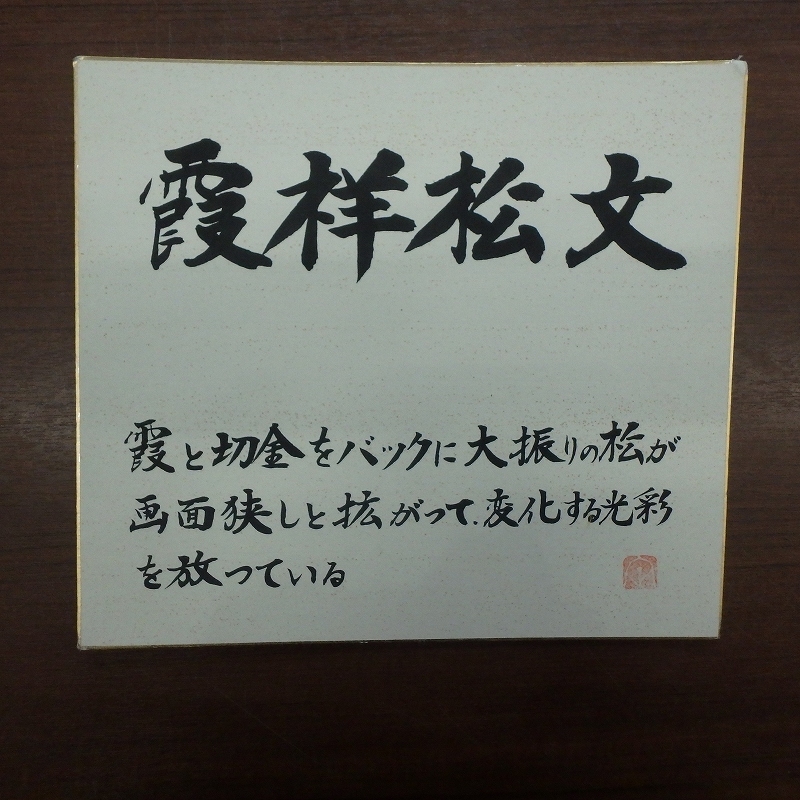 霞祥松文
霞と切金をバックに大振りの松が
画面狭しと拡がって、変化する光彩
を放っている